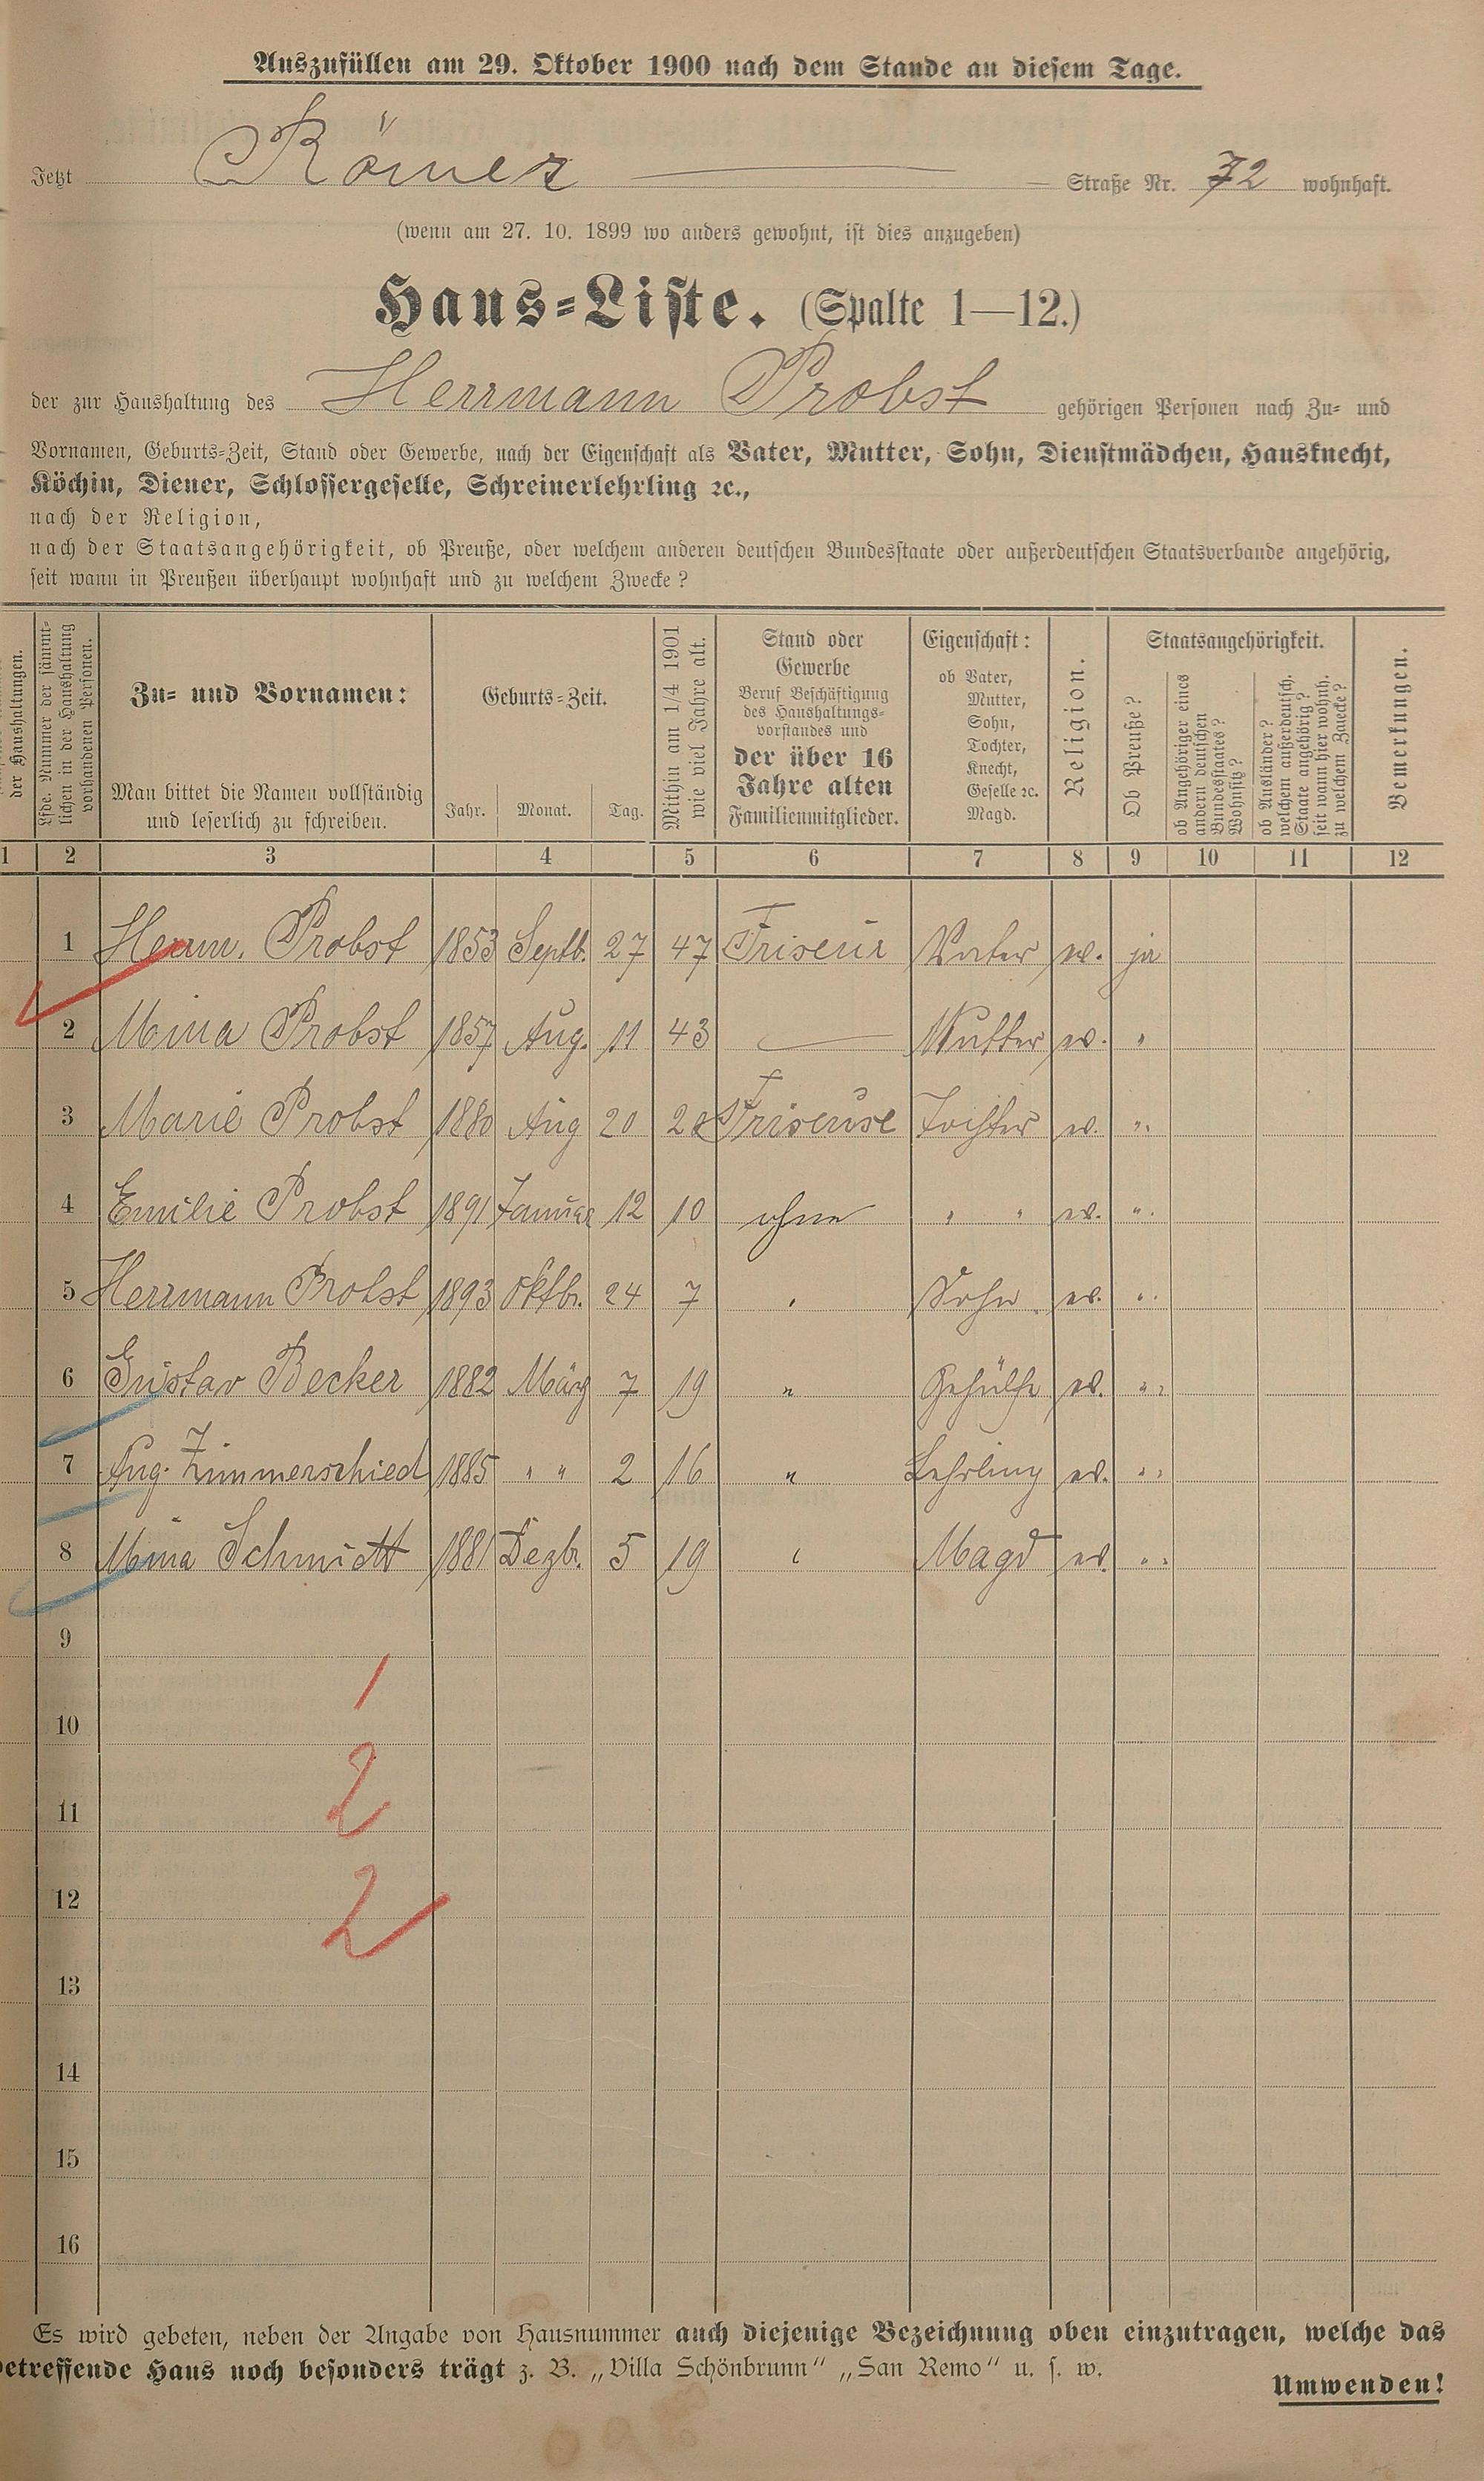 Auszufüllen am 29. Oktober 1900 nach dem Stande an diesem Tage.
Jetzt Römer Straße Nr. 72 wohnhaft.
(wenn am 27. 10. 1899 wo anders gewohnt, ist dies anzugeben)
Haus-Liste. (Spalte 1—12.)
der zur Haushaltung des Herrmann Probst gehörigen Personen nach Zu- und
Vornamen, Geburts-Zeit, Stand oder Gewerbe, nach der Eigenschaft als Vater, Mutter, Sohn, Dienstmädchen, Hausknecht,
Köchin, Diener, Schlossergeselle, Schreinerlehrling ꝛc.,
nach der Religion,
nach der Staatsangehörigkeit, ob Preuße, oder welchem anderen deutschen Bundesstaate oder außerdeutschen Staatsverbande angehörig,
seit wann in Preußen überhaupt wohnhaft und zu welchem Zwecke?
der Haushaltungen.
Lfde. Nummer der sämmt-
lichen in der Haushaltung
vorhandenen Personen.
Zu- und Vornamen:
Man bittet die Namen vollständig
und leserlich zu schreiben.
Geburts-Zeit.
Jahr. Monat. Tag.
Mithin am 1/4 1901
wie viel Jahre alt.
Stand oder
Gewerbe
Beruf Beschäftigung
des Haushaltungs-
vorstandes und
der über 16
Jahre alten
Familienmitglieder.
Eigenschaft:
ob Vater,
Mutter,
Sohn,
Tochter,
Knecht,
Geselle ꝛc.
Magd.
Religion.
Staatsangehörigkeit.
Ob Preuße?
ob Angehöriger eines
andern deutschen
Bundesstaates?
Wohnsitz?
ob Ausländer?
welchem außerdeutsch.
Staate angehörig?
seit wann hier wohnh.
zu welchem Zwecke?
Bemerkungen.
1 2 3 4 5 6 7 8 9 10 11 12
1 Herrm. Probst 1853 Septb. 27 47 Friseur Vater ev. ja
2 Mina Probst 1857 Aug. 11 43 — Mutter ev. "
3 Marie Probst 1880 Aug 20 20 Friseuse Tochter ev. "
4 Emilie Probst 1891 Januar 12 10 ohne " " ev. "
5 Herrmann Probst 1893 Oktbr. 24 7 " Sohn ev. "
6 Gustav Becker 1882 März 7 19 " Gehülfe ev. "
7 Aug. Zimmerschied 1885 " " 2 16 " Lehrling ev. "
8 Mina Schmidt 1881 Dezbr. 5 19 " Magd ev. "
9
1
10
2
11
12
2
13
14
15
16
Es wird gebeten, neben der Angabe von Hausnummer auch diejenige Bezeichnung oben einzutragen, welche das
betreffende Haus noch besonders trägt z. B. „Villa Schönbrunn“ „San Remo“ u. s. w.
Umwenden!